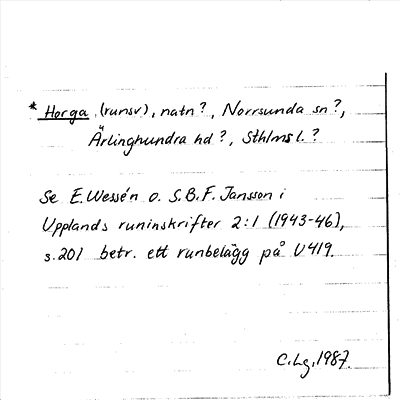 * Horga (runsv), natn?, Norrsunda sn?,
Ärlinghundra hd?, Sthlms l.?
Se E. Wessén o. S.B.F. Jansson i
Upplands runinskrifter 2:1 (1943-46),
s.201 betr. ett runbelägg på U419.
C.Lg, 1987.